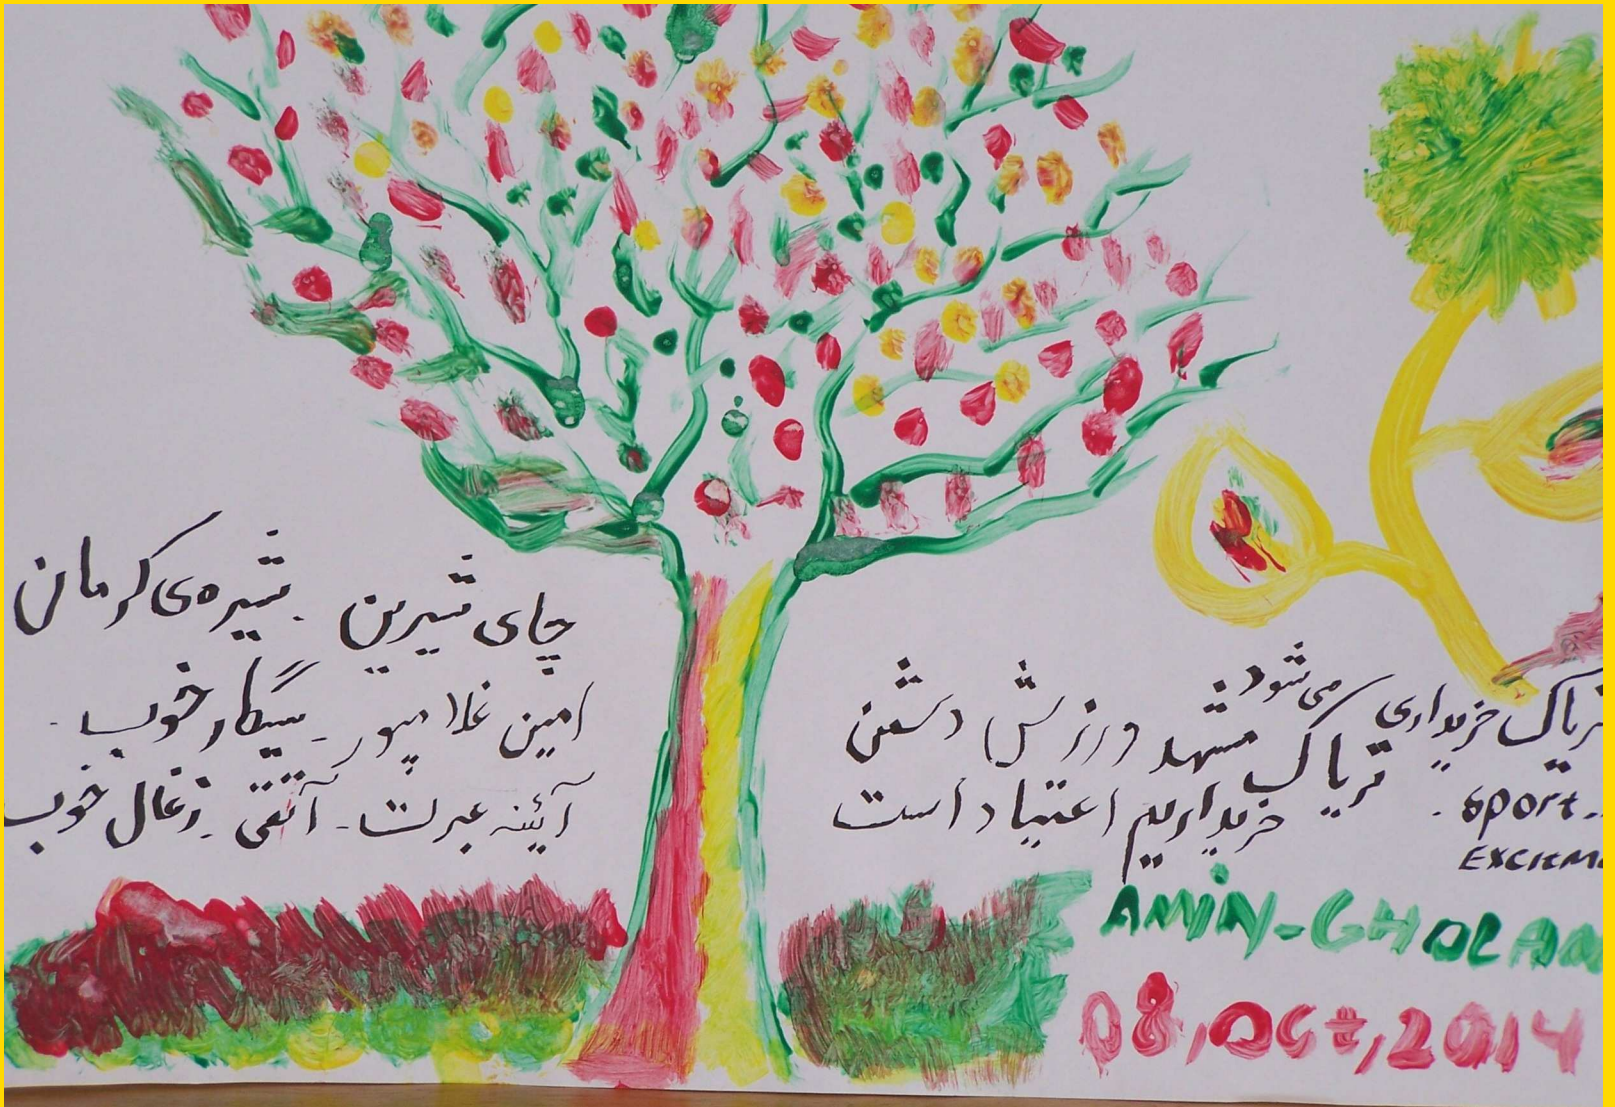 چای شیرین. شیره‌ی کرمان
امین غلامپور - سیگار خوب -
آئینه عبرت - آتقی. زغال خوب
تریاک خریداری می‌شود
تریاک مشهد ورزش دشمن
خریداریم اعتیاد است
sport..
AMIN-GHOLAM
08,Oct,2014